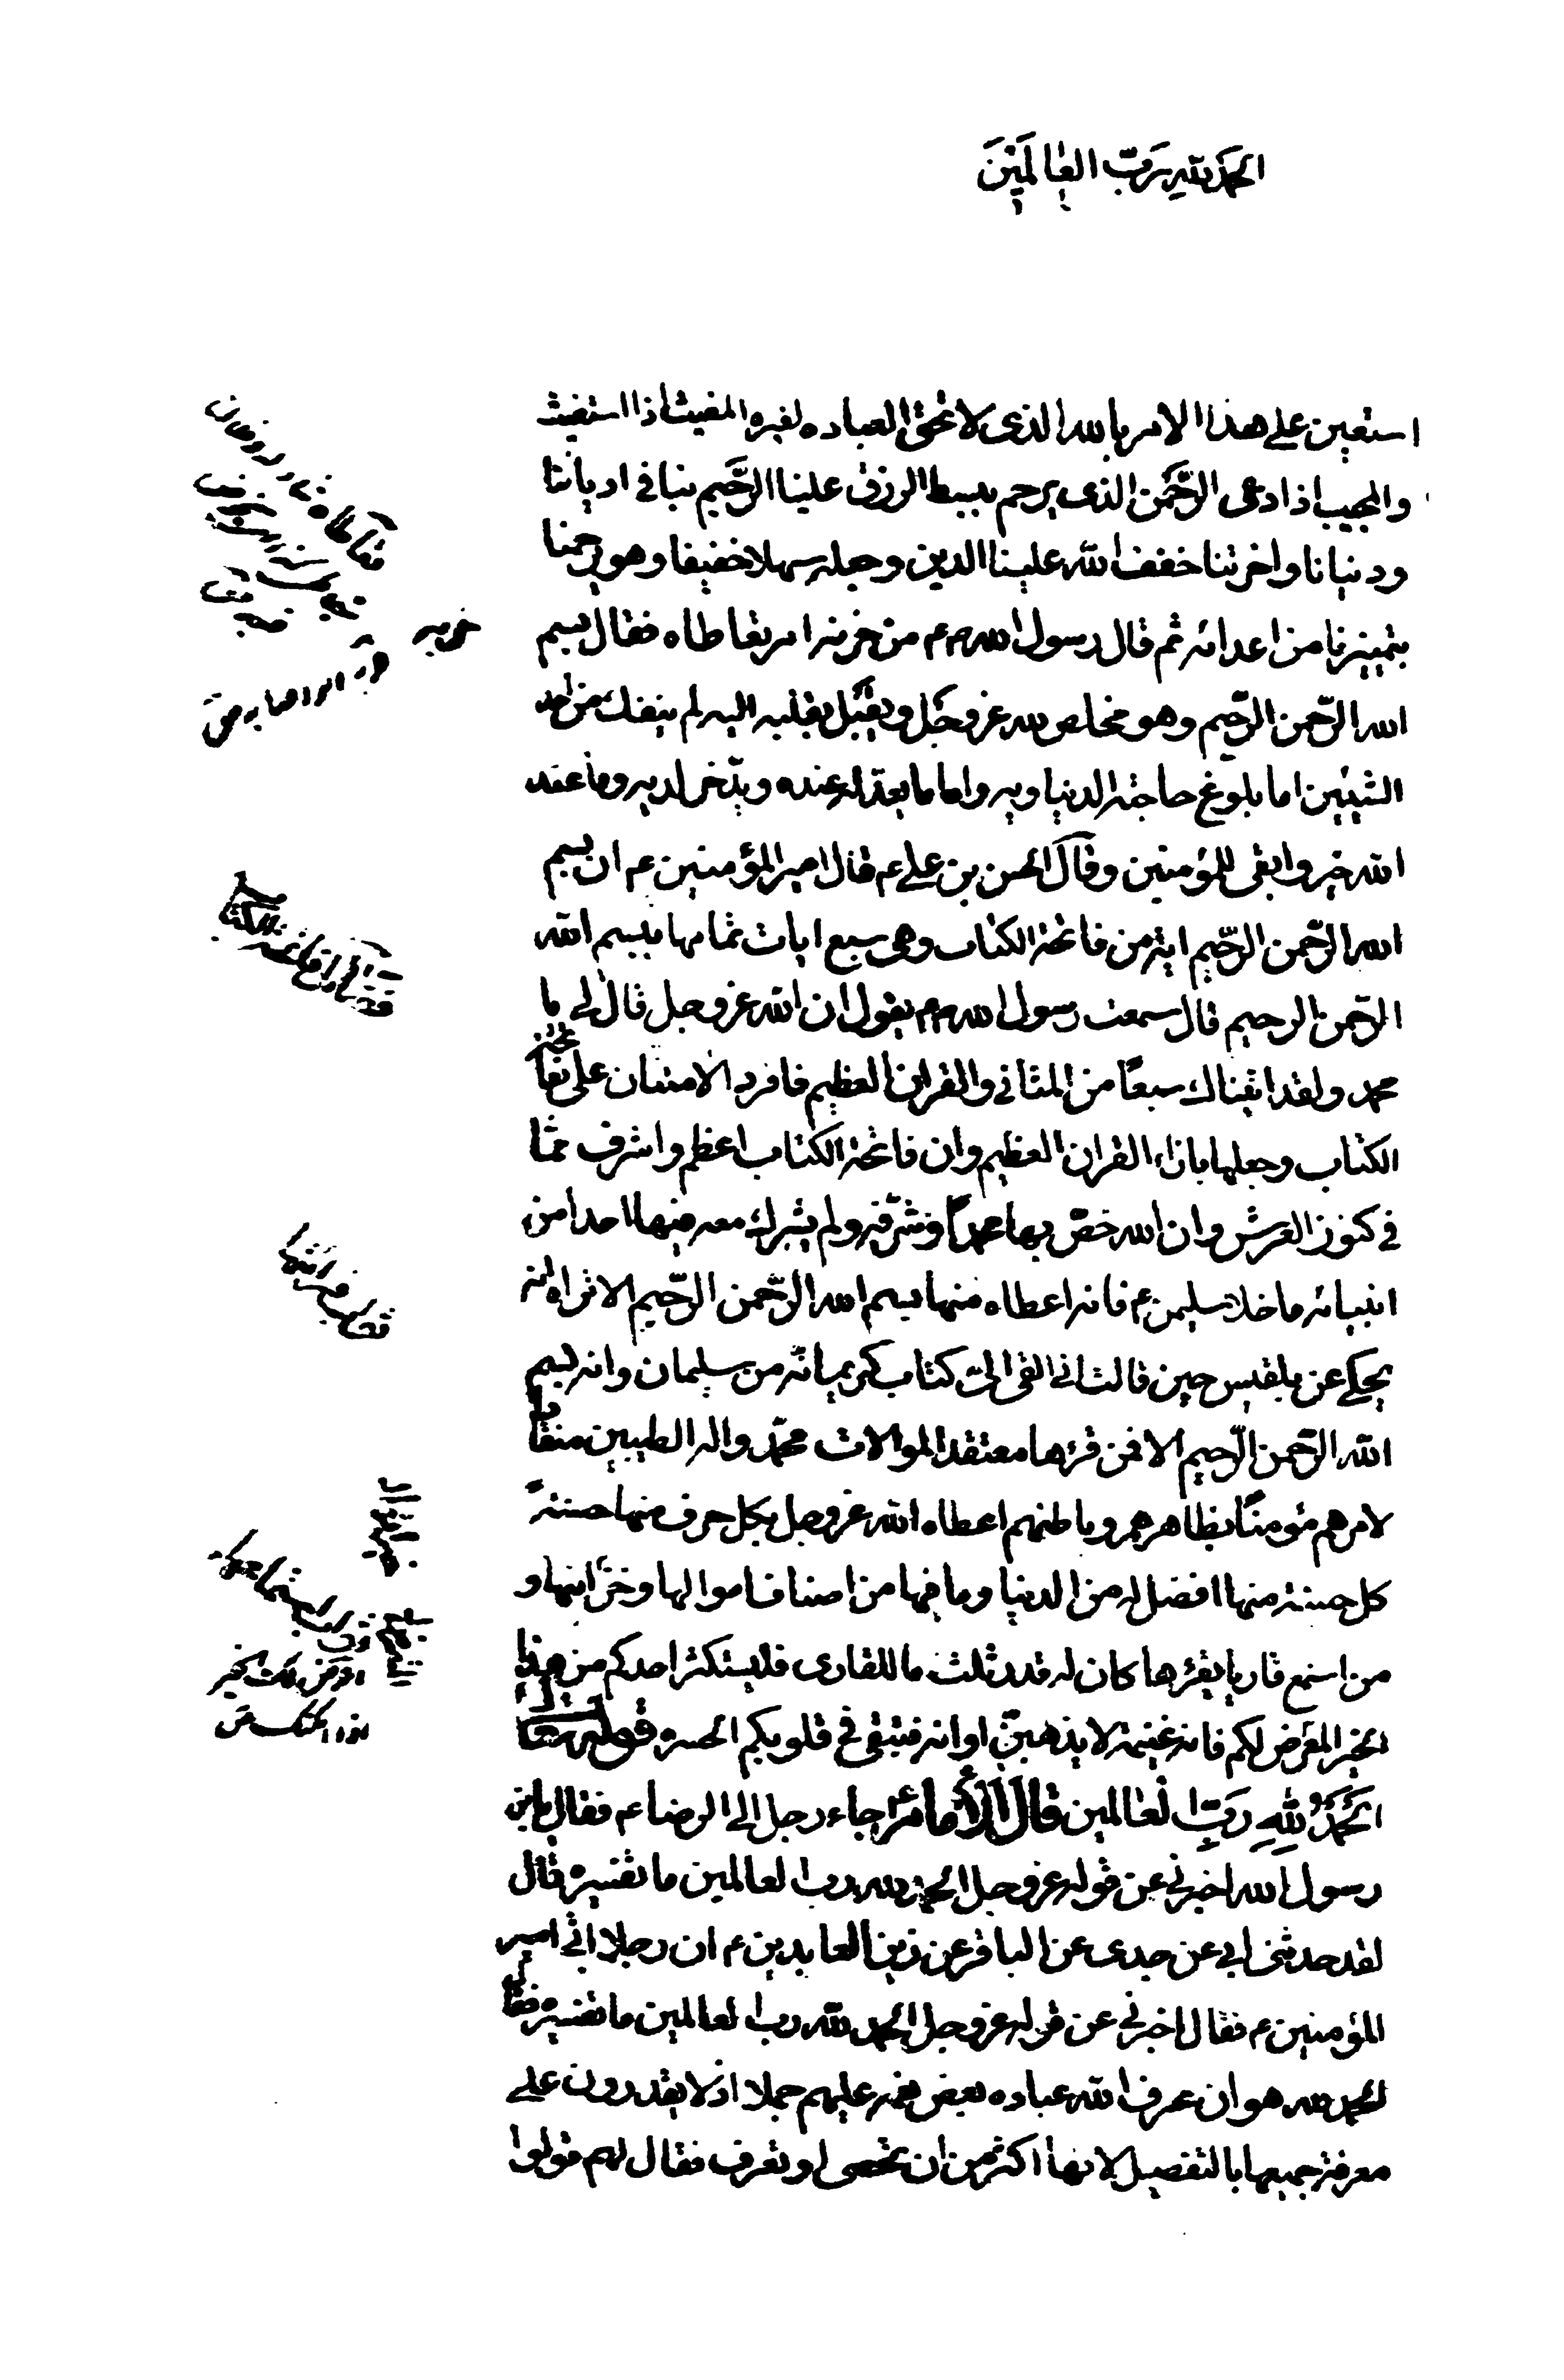 الحمد لله رب العالمين
استعين على هذا الامر بالله الذى لا تحق العباده لغيره المغيث اذا استغيث
والمجيب اذا دعى الرحمن الذى يرحم ببسط الرزق علينا الرحيم بنا فى ادياننا
ودنيانا واخرتنا خفف الله علينا الدين وجعله سهلا خفيفا وهو يرحمنا
بتمييزنا من اعدائه ثم قال رسول الله ص م من حزنه امر تعاطاه فقال بسم
الله الرحمن الرحيم وهو مخلص لله عز وجل ويقبل بقلبه اليه لم ينفك من احد
الشيئين اما بلوغ حاجته الدنياويه واما ما يعد له عنده ويدخر لديه وما عند
الله خير وابقى للمؤمنين وقال الحسن بن على ع قال امير المؤمنين ع ان بسم
الله الرحمن الرحيم ايه من فاتحة الكتاب وهى سبع ايات تمامها ببسم الله
الرحمن الرحيم قال سمعت رسول الله ص م يقول ان الله عز وجل قال لى يا
محمد ولقد اتيناك سبعا من المثانى والقران العظيم فافرد الامتنان على بفاتحة
الكتاب وجعلها بازاء القران العظيم وان فاتحة الكتاب اعظم واشرف مما
فى كنوز العرش وان الله خص بها محمدا وشرفه ولم يشرك معه فيها احدا من
انبيائه ما خلا سليمن ع فانه اعطاه منها بسم الله الرحمن الرحيم الا تراه انه
يحكى عن بلقيس حين قالت انى القى الى كتاب كريم انه من سليمان وانه بسم
الله الرحمن الرحيم الا فمن قرءها معتقدا لموالات محمد واله الطيبين منقادا
لامرهم مؤمنا بظاهرهم وباطنهم اعطاه الله عز وجل بكل حرف منها حسنة
كل حسنة منها افضل له من الدنيا وما فيها من اصناف اموالها وخزاينها و
من استمع قاريا يقرءها كان له قدر ثلث ما للقارى فليستكثر احدكم من هذا
الخير المعرض لكم فانه غنيمة لا يذهبن اوانه فتبقى فى قلوبكم الحسرة قوله تعالى
الحمد لله رب العالمين قال الامام ع جاء رجل الى الرضا ع فقال يابن
رسول الله اخبرنى عن قوله عز وجل الحمد لله رب العالمين ما تفسيره قال
لقد حدثنى ابى عن جدى عن الباقر عن زين العابدين ع ان رجلا اتى امير
المؤمنين ع فقال اخبرنى عن قوله عز وجل الحمد لله رب العالمين ما تفسيره فقال
الحمد لله هو ان عرف الله عباده بعض نعمه عليهم جملا اذ لا يقدرون على
معرفة جميعها بالتفصيل لانها اكثر من ان تحصى او تعرف فقال لهم قولوا